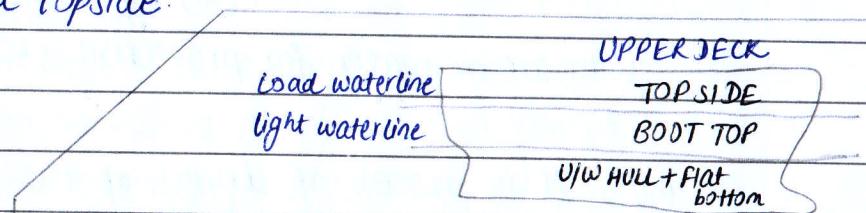 Topside.
UPPER DECK
Load waterline TOP SIDE
light waterline BOOT TOP
U/W HULL + Flat
bottom